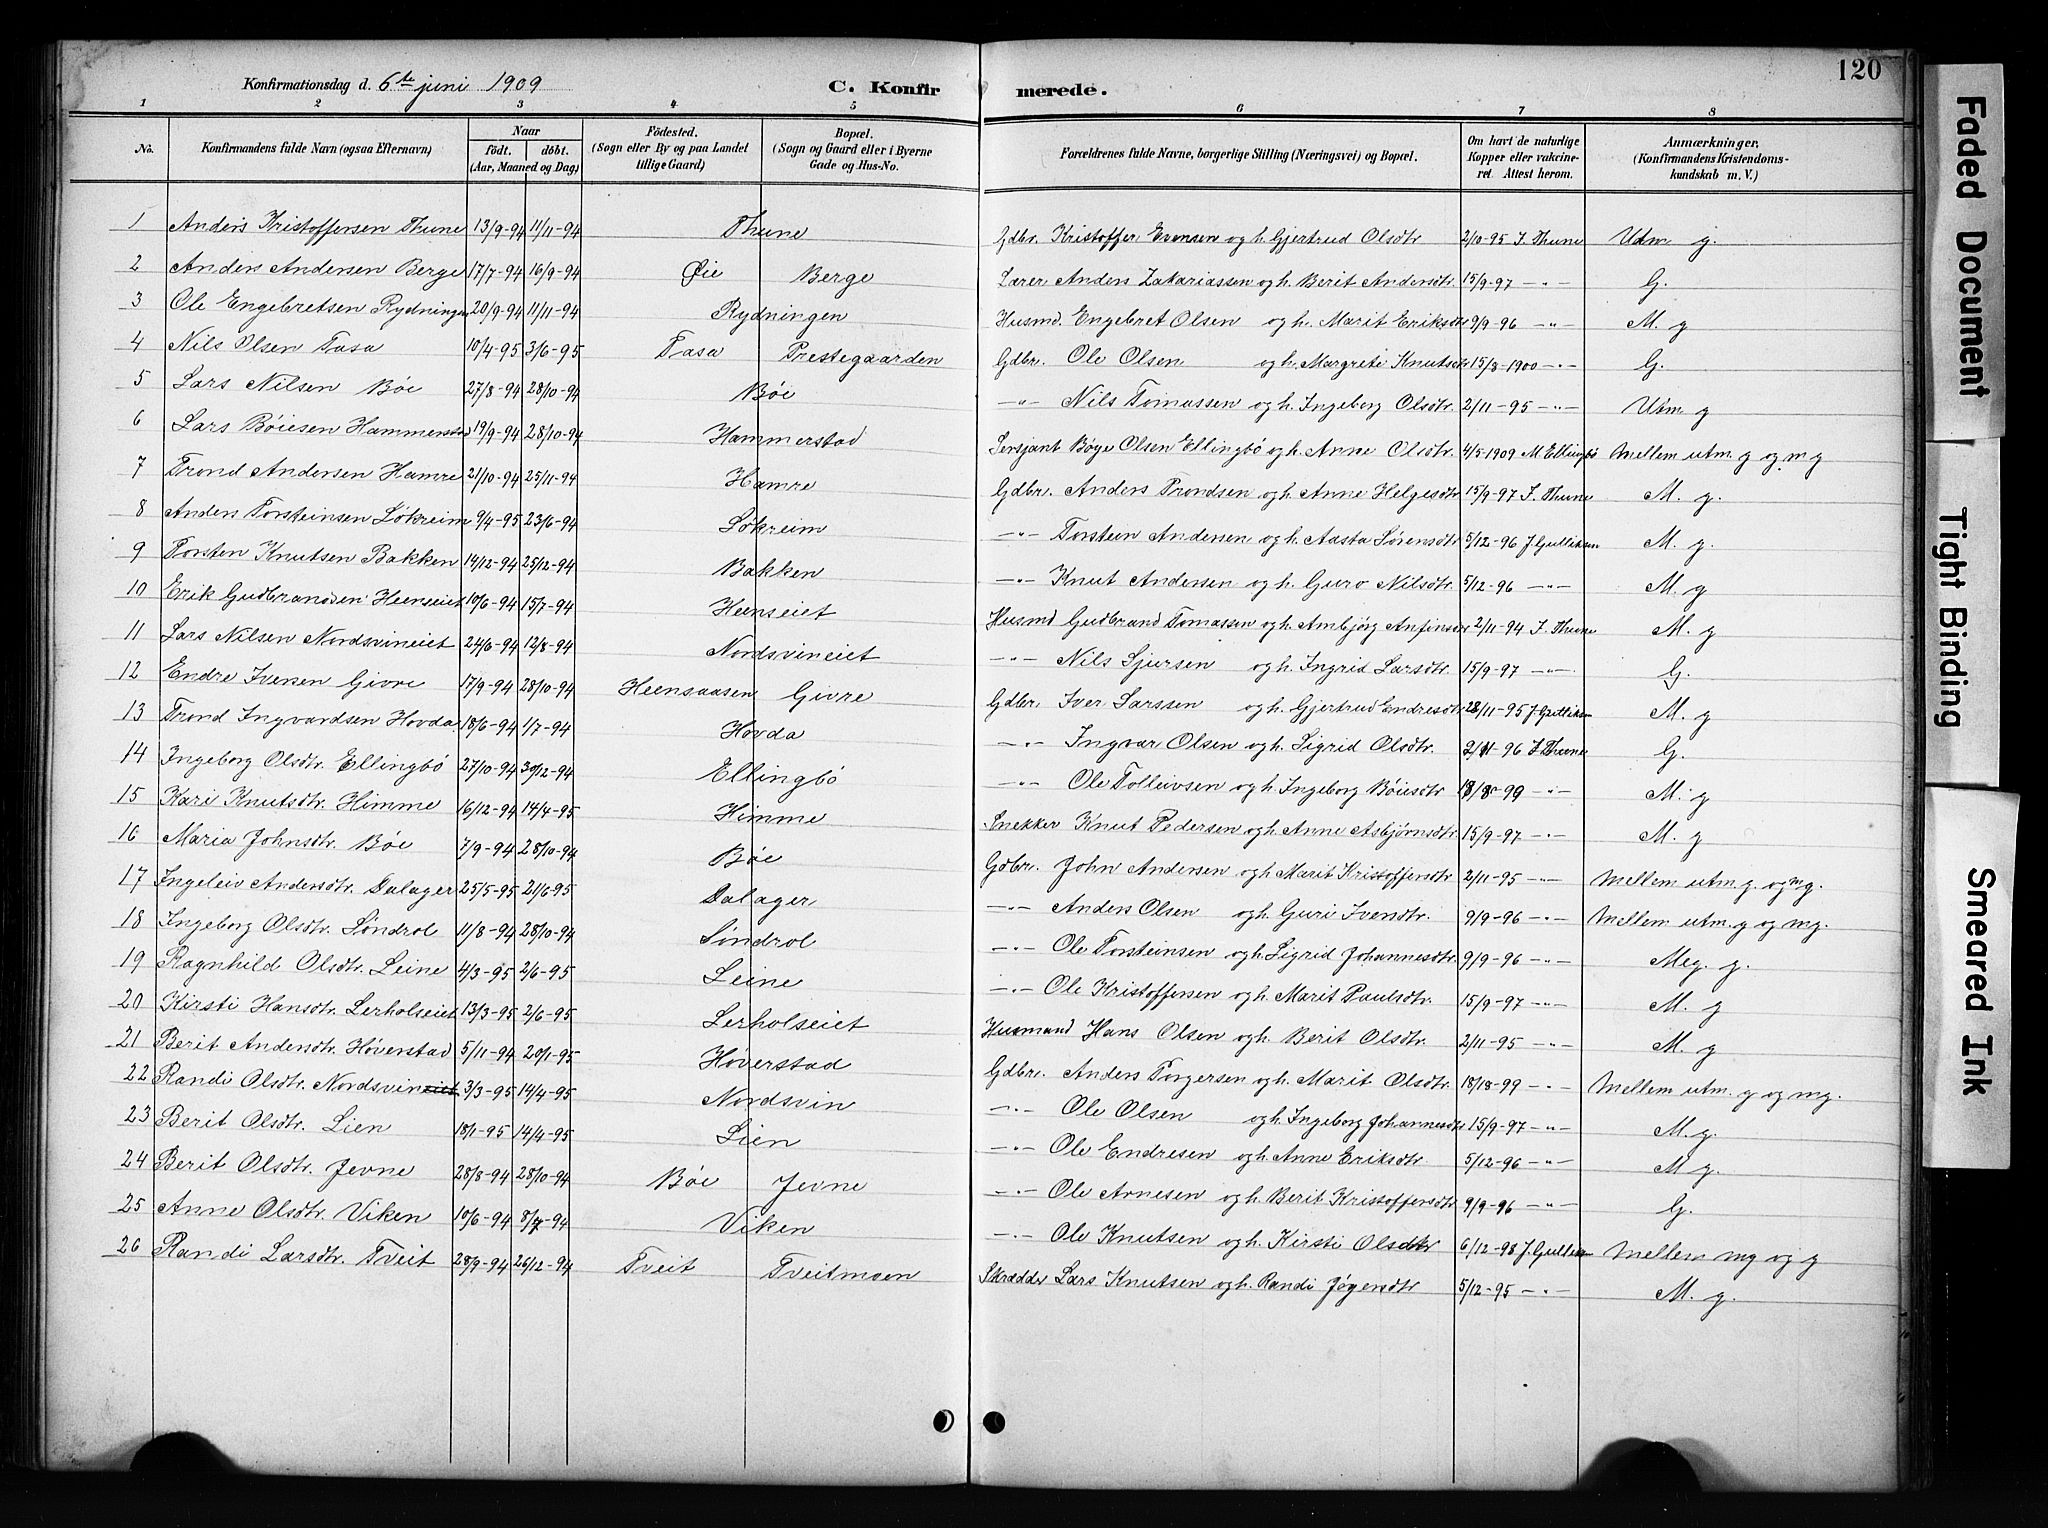 120
Konfirmationsdag d. 6te juni 1909 C. Konfirmerede.
1 2 3 4 5 6 7 8
No. Konfirmandens fulde Navn (ogsaa Efternavn) Naar födt. döbt. (Aar, Maaned og Dag) Födested. (Sogn eller By og paa Landet tillige Gaard) Bopæl. (Sogn og Gaard eller i Byerne Gade og Hus-No. Forældrenes fulde Navne, borgerlige Stilling (Næringsvei) og Bopæl. Om havt de naturlige Kopper eller vakcineret. Attest herom. Anmærkninger, (Konfirmandens Kristendomskundskab m. V.)
1 Anders Kristoffersen Thune 13/9-94 11/11-94 Thune Gdbr. Kristoffer Evensen og h. Gjertrud Olsdtr 2/10-95 J. Thune Udm g.
2 Anders Andersen Berge 17/7-94 16/9-94 Øie Berge Lærer Anders Zakariassen og h. Berit Andersdtr. 15/9-97 -"- G.
3 Ole Engebretsen Rydningen 20/9-94 11/11-94 Rydningen Husmd. Engebret Olsen og h. Marit Eriksdtr 9/9-96 -"- M. g
4 Nils Olsen Tasa 10/4-95 3/6-95 Tasa Prestegaarden Gdbr. Ole Olsen og h. Margrete Knutsdtr 15/8-1900 -"- G.
5 Lars Nilsen Bøe 27/8-94 28/10-94 Bøe -"- Nils Tomassen og h. Ingeborg Olsdtr. 2/11-95 -"- Utm g
6 Lars Bøiesen Hammerstad 19/9-94 28/10-94 Hammerstad Sersjant Bøye Olsen Ellingbö og h. Anne Olsdtr. 4/5-1909 M Ellingbö Mellem utm. g og m g
7 Trond Andersen Hamre 21/10-94 25/11-94 Hamre Gdbr. Anders Trondsen og h. Anne Helgesdtr 15/9-97 J. Thune M. g.
8 Anders Torsteinsen Lökreim 9/4-95 23/6-94 Lökreim -"- Torstein Andersen og h. Aasta Sørensdtr 5/12-96 J. Gulliksen M. g.
9 Torsten Knutsen Bakken 14/12-94 25/12-94 Bakken -"- Knut Andersen og h. Guro Nilsdtr. 5/12-96 -"- M. g
10 Erik Gudbrandsen Heenseiet 10/6-94 15/7-94 Heenseiet Husmd Gudbrand Tomassen og h. Ambjörg Anfinsdtr 2/11-94 J. Thune M. g
11 Lars Nilsen Nordsvineiet 24/6-94 12/8-94 Nordsvineiet -"- Nils Sjursen og h. Ingrid Larsdtr. 15/9-97 -"- G.
12 Endre Iversen Givre 17/9-94 28/10-94 Heensaasen Givre Gdbr. Iver Larssen og h. Gjertrud Endresdtr 28/11-95 J. Gulliksen M. g
13 Trond Ingvardsen Hovda 18/6-94 1/7-94 Hovda -"- Ingvar Olsen og h. Sigrid Olsdtr. 2/11-96 J. Thune G.
14 Ingeborg Olsdtr. Ellingbö 27/10-94 30/12-94 Ellingbö -"- Ole Tolleivsen og h. Ingeborg Bøiesdtr 18/8-99 -"- M. g
15 Kari Knutsdtr. Himme 16/12-94 14/4-95 Himme Snekker Knut Pedersen og h. Anne Asbjørnsdtr 15/9-97 -"- M. g
16 Maria Johnsdtr. Bøe 7/9-94 28/10-94 Bøe Gdbr. John Andersen og h. Marit Kristoffersdtr 2/11-95 -"- Mellem utm g. og mg.
17 Ingeleiv Andersdtr. Dalager 25/5-95 21/6-95 Dalager -"- Anders Olsen og h. Guri Ivensdtr. 9/9-96 -"- Mellem utm. g og mg.
18 Ingeborg Olsdtr. Söndrol 11/8-94 28/10-94 Söndrol -"- Ole Torsteinsen og h. Sigrid Johannesdtr. 9/9-96 -"- Meg. g.
19 Ragnhild Olsdtr. Leine 4/3-95 2/6-95 Leine -"- Ole Kristoffersen og h. Marit Paulsdtr. 15/9-97 -"- M. g
20 Kirsti Hansdtr. Lerholseiet 13/3-95 2/6-95 Lerholseiet Husmand Hans Olsen og h. Berit Olsdtr. 2/11-95 -"- M. g
21 Berit Andersdtr. Höverstad 5/11-94 20/1-95 Höverstad Gdbr. Anders Torgersen og h. Marit Olsdtr. 18/18-99 -"- Mellem utm. g og mg.
22 Randi Olsdtr. Nordsvineiet 3/3-95 14/4-95 Nordsvin -"- Ole Olsen og h. Ingeborg Johannesdtr 15/9-97 -"- M. g.
23 Berit Olsdtr. Lien 18/1-95 14/4-95 Lien -"- Ole Endresen og h. Anne Eriksdtr. 5/12-96 -"- M. g.
24 Berit Olsdtr. Jevne 28/8-94 28/10-94 Bøe Jevne -"- Ole Arnesen og h. Berit Kristoffersdtr. 9/9-96 -"- G.
25 Anne Olsdtr. Viken 10/6-94 8/7-94 Viken -"- Ole Knutsen og h. Kirsti Olsdtr 6/12-98 J. Gulliksen Mellem mg og g
26 Randi Larsdtr. Tveit 28/9-94 26/12-94 Tveit Tveitmoen Skrædder Lars Knutsen og h. Randi Jøgersdtr 5/12-95 -"- M. g.
Faded Document
Tight Binding
Smeared Ink